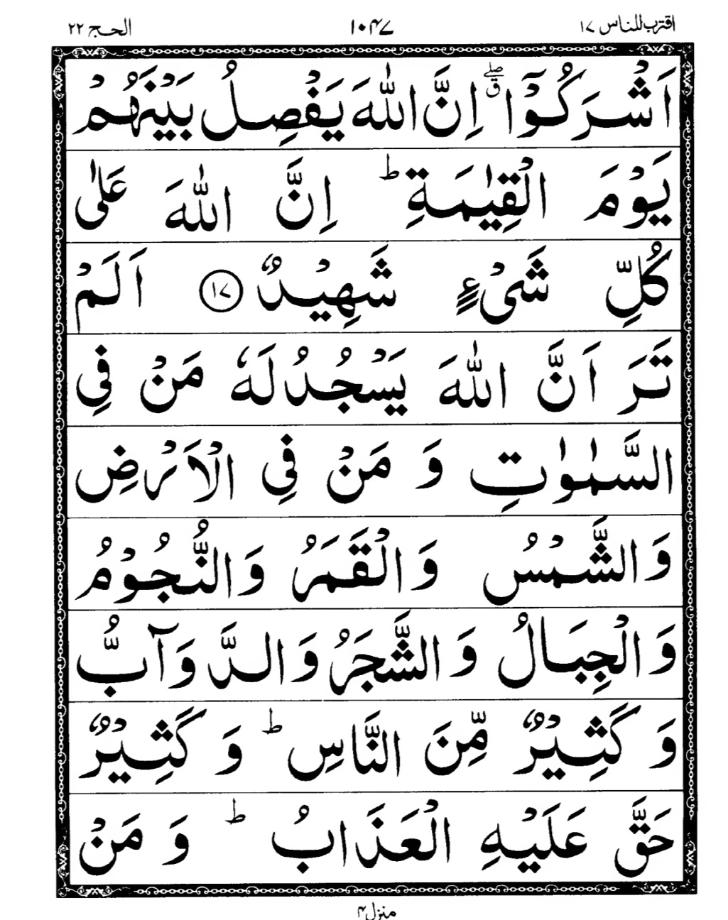 اقترب للناس ١٧ ١٠٤٧ الحج ٢٢
اَشْرَكُوْۤا ۖۗ اِنَّ اللّٰهَ يَفْصِلُ بَيْنَهُمْ
يَوْمَ الْقِيٰمَةِ ؕ اِنَّ اللّٰهَ عَلٰى
كُلِّ شَیْءٍ شَهِيْدٌ ۝١٧ اَلَمْ
تَرَ اَنَّ اللّٰهَ يَسْجُدُ لَهٗ مَنْ فِی
السَّمٰوٰتِ وَ مَنْ فِی الْاَرْضِ
وَالشَّمْسُ وَالْقَمَرُ وَالنُّجُوْمُ
وَالْجِبَالُ وَالشَّجَرُ وَالدَّوَآبُّ
وَ كَثِيْرٌ مِّنَ النَّاسِ ؕ وَ كَثِيْرٌ
حَقَّ عَلَيْهِ الْعَذَابُ ؕ وَ مَنْ
منزل ۴